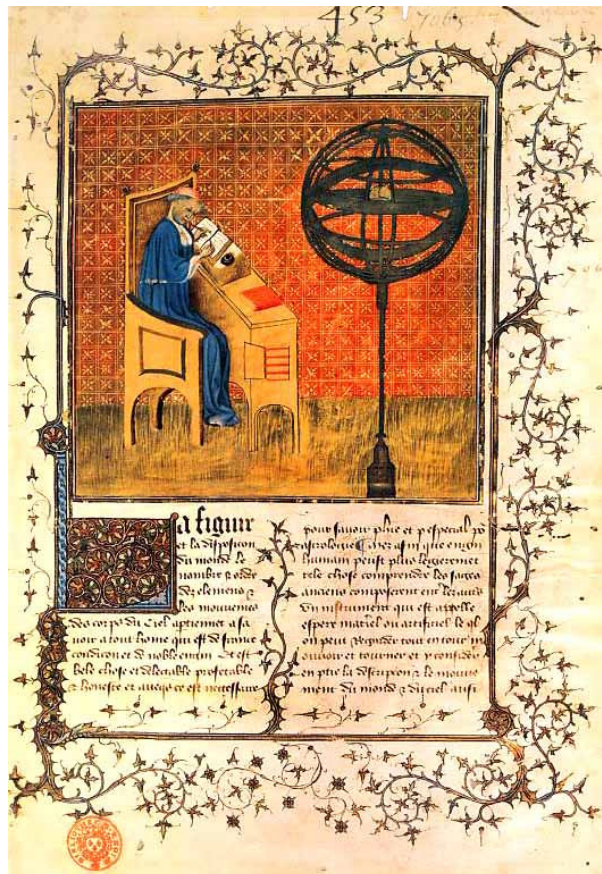 453
7065
La figure
et la disposicion
du monde le
nombre & ordre
dez elemens &
les mouuemens
des corps du ciel aptienet a sa
uoir a tout home qui est de franc
condicion et de noble engin Et est
bele chose et delectable profetable
& honeste et auecques ce est necessaire
pour sauoir phie et p especial po
astrologie Car afin que engin
humain peust plus legierement
tele chose comprendre les sages
anciens composerent entre les autres
un instrument qui est appelle
espere materiel ou artificiel le ql
on peut regarder tout entour
mouuoir et tourner et y considerer
en ptie la descripcion & le mouue
ment du monde & du ciel aussi